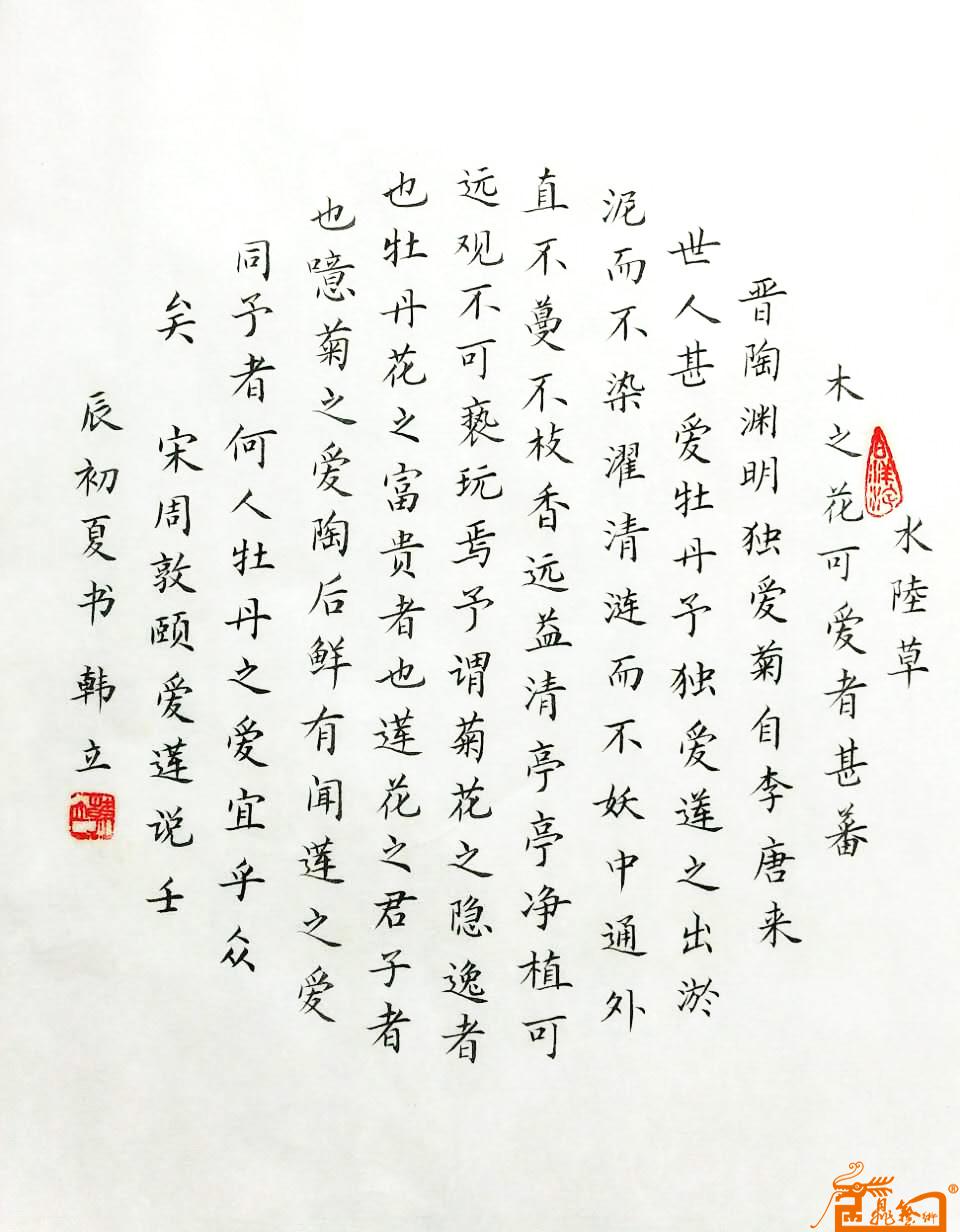 水陸草
木之花可爱者甚蕃
晋陶渊明独爱菊自李唐来
世人甚爱牡丹予独爱莲之出淤
泥而不染濯清涟而不妖中通外
直不蔓不枝香远益清亭亭净植可
远观不可亵玩焉予谓菊花之隐逸者
也牡丹花之富贵者也莲花之君子者
也噫菊之爱陶后鲜有闻莲之爱
同予者何人牡丹之爱宜乎众
矣 宋周敦颐爱莲说 壬
辰初夏书韩立